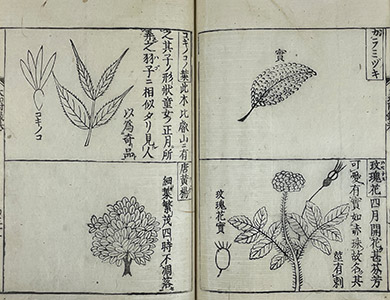 實
玫瑰花 四月開花甚芬芳
可愛有實如赤珠故名其
莖有刺
玫瑰花實
コキノコノ葉此木比叡山ニ有
之其子ノ形狀童女ノ正月所
弄之羽子ニ相似タリ見人
以為奇品
コキノコ
唐黄楊
細葉繁茂四時不凋落